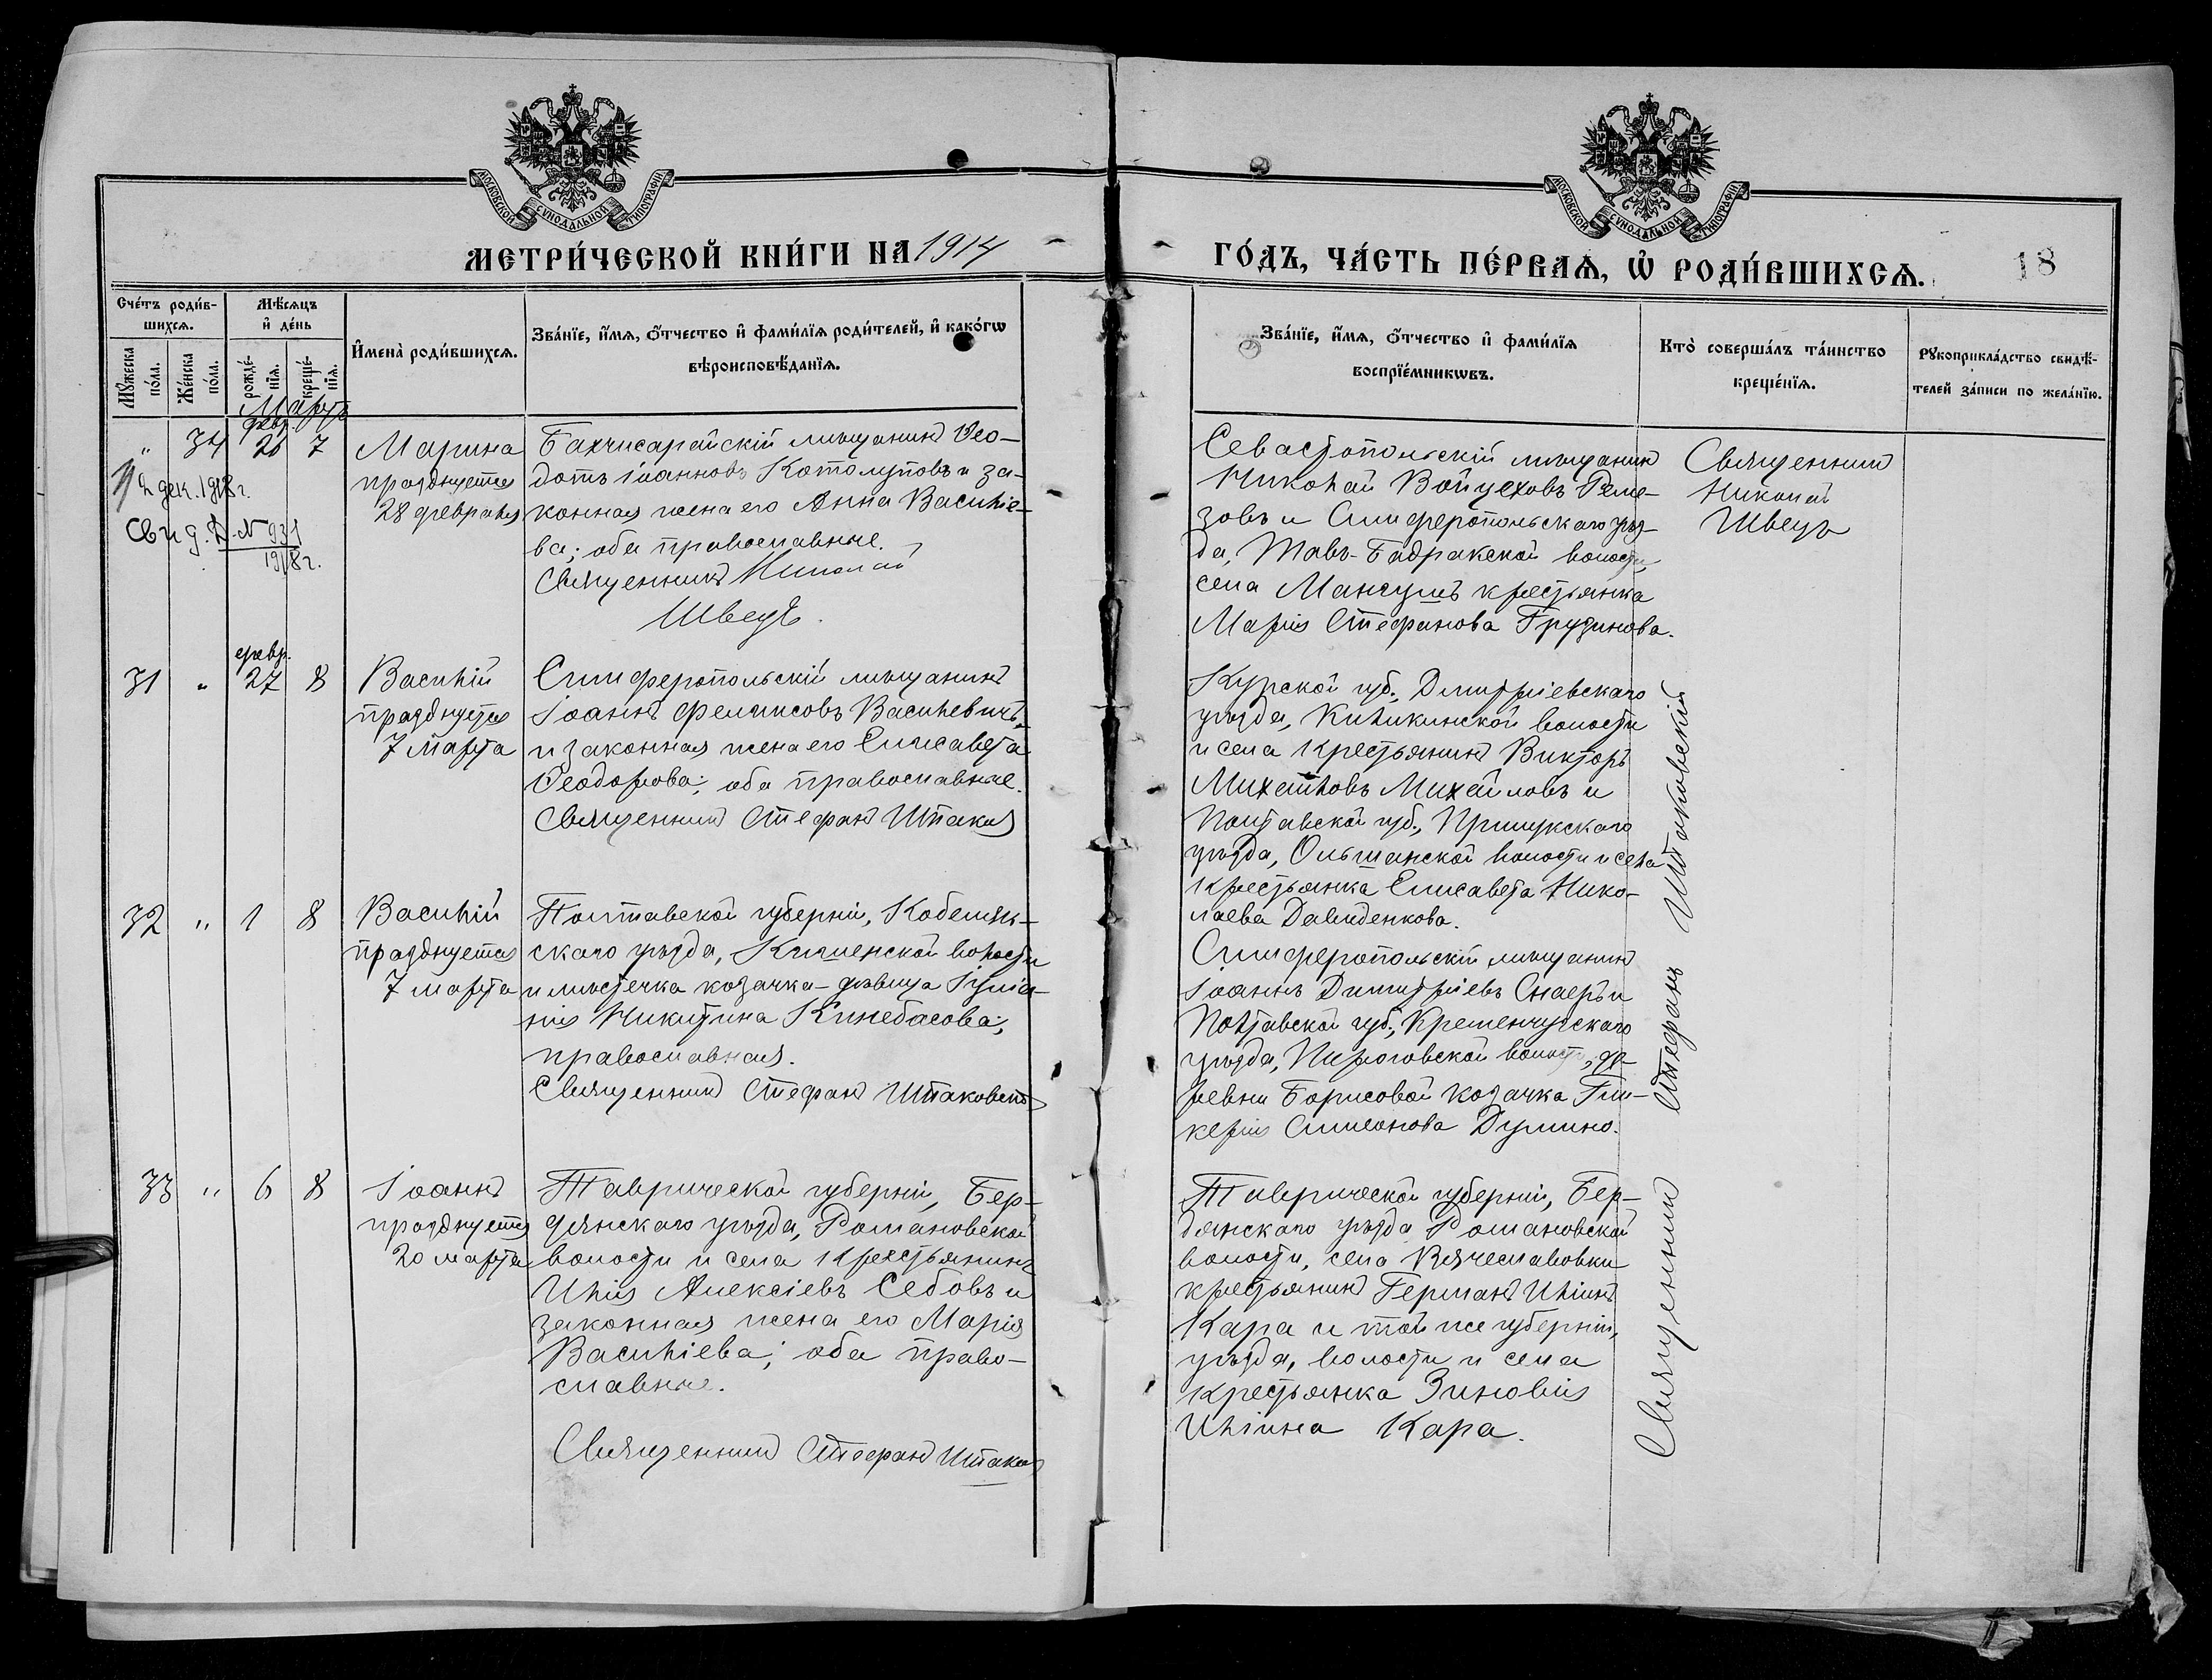 МОСКОВСКОЙ СѴНОДАЛЬНОЙ ТИПОГРАФІИ
МОСКОВСКОЙ СѴНОДАЛЬНОЙ ТИПОГРАФІИ
МЕТРИ́ЧЕСКОЙ КНИ́ГИ НА 1914
ГО́ДЪ, ЧА́СТЬ ПЕ́РВАѦ, Ѽ РОДИ́ВШИХСѦ.
18
Сче́тъ роди́в-
шихсѧ.
Мꙋ́жеска
по́ла.
Же́нска
по́ла.
Мѣ́сѧцъ
и҆ де́нь
рожде́-
нїѧ.
креще́-
нїѧ.
И҆мена̀ роди́вшихсѧ.
Зва́нїе, и҆́мѧ, ѻ҆́тчество и҆ фами́лїѧ роди́телей, и҆ како́гѡ
вѣроисповѣ́данїѧ.
Зва́нїе, и҆́мѧ, ѻ҆́тчество и҆ фами́лїѧ
воспрїе́мникѡвъ.
Кто̀ соверша́лъ та́инство
креще́нїѧ.
Рꙋкоприкла́дство свидѣ́-
телей за́писи по жела́нїю.
Мартъ
февр.
" 34 26 7
Марина
празднуется
28 февраля
2 дек. 1918 г.
Свид. № 931
1918 г.
Бахчисарайскій мѣщанинъ Ѳео-
дотъ Іоанновъ Котолуповъ и за-
конная жена его Анна Василіе-
ва; оба православные.
Священникъ Николай
Швецъ.
Севастопольскій мѣщанинъ
Николай Войцеховъ Реме-
зовъ и Симферопольскаго уѣз-
да, Тавъ-Бадракской волости,
села Мангушъ крестьянка
Марія Стефанова Грузинова.
Священникъ
Николай
Швецъ
февр.
31 " 27 8
Василій
празднуется
7 марта
Симферопольскій мѣщанинъ
Іоаннъ Феликсовъ Василевичъ
и законная жена его Елисавета
Ѳеодорова; оба православные.
Священникъ Стефанъ Штаков
Курской губ., Дмитріевскаго
уѣзда, Киликинской волости
и села крестьянинъ Викторъ
Михайловъ Михайловъ и
Полтавской губ., Прилукскаго
уѣзда, Ольшанской волости и села
крестьянка Елисавета Нико-
лаева Давиденкова.
32 " 1 8
Василій
празднуется
7 марта
Полтавской губерніи, Кобеляк-
скаго уѣзда, Кишенской волости
и мѣстечка козачка-дѣвица Іуліа-
нія Никитина Кинебасова;
православная.
Священникъ Стефанъ Штаковскій
Симферопольскій мѣщанинъ
Іоаннъ Димитріевъ и
Полтавской губ., Кременчугскаго
уѣзда, Пироговской волости, де-
ревни Борисовой козачка Гли-
керія Симеонова Думино.
33 " 6 8
Іоаннъ
празднуется
20 марта
Таврической губерніи, Бер-
дянскаго уѣзда, Романовской
волости и села крестьянинъ
Илія Алексіевъ Седовъ и
законная жена его Марія
Василіева; оба право-
славные.
Священникъ Стефанъ Штаков
Таврической губерніи, Бер-
дянскаго уѣзда Романовской
волости, села Вячеславовки
крестьянинъ Германъ Иліинъ
Кара и той же губерніи,
уѣзда, волости и села
крестьянка Зиновія
Иліина Кара.
Священникъ Стефанъ Штаковскій